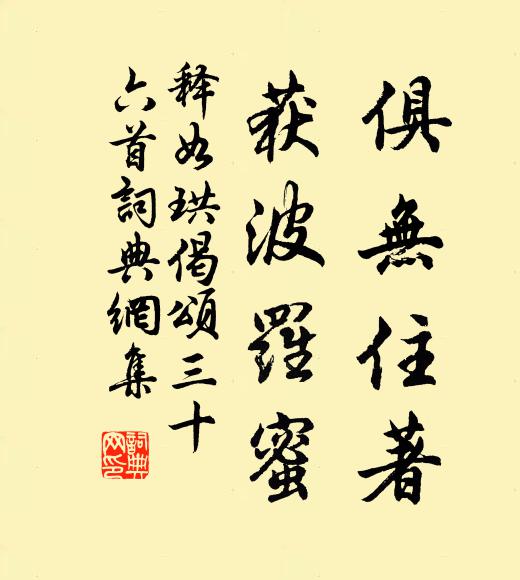 俱無住著
获波羅蜜
释如珙偈頌三十
六首詞典網集
詞典
网印